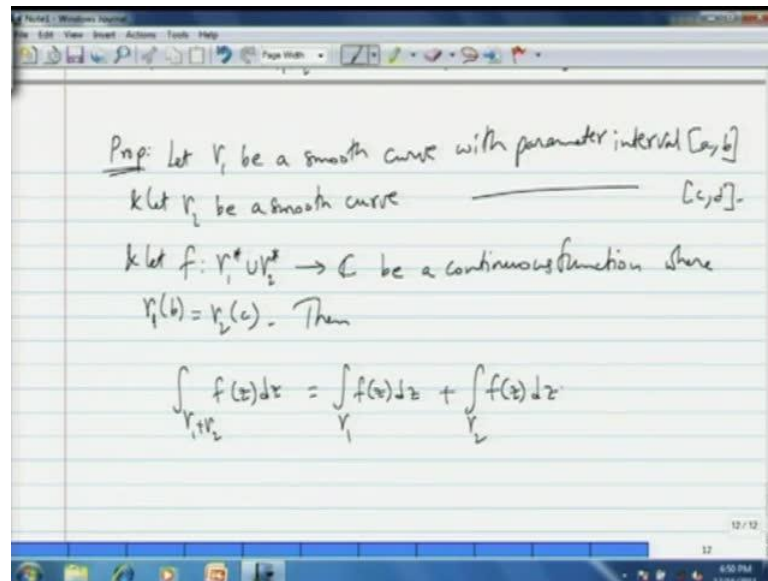 Note1 - Windows Journal
File Edit View Insert Actions Tools Help
Page Width
Prop: Let γ₁ be a smooth curve with parameter interval [a,b]
& let γ₂ be a smooth curve ———— [c,d].
& let f: γ₁* ∪ γ₂* → ℂ be a continuous function where
γ₁(b) = γ₂(c). Then
∫_{γ₁+γ₂} f(z)dz = ∫_{γ₁} f(z)dz + ∫_{γ₂} f(z)dz.
12 / 12
12
4:50 PM